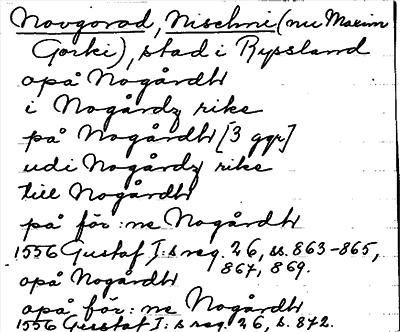 Novgorod, Nischni (nu Maxim
Gorki), stad i Ryssland
opå Nogårdh
i Nogårdz rike
på Nogårdh [3 ggr]
udi Nogårdz rike
till Nogårdh
på för:ne Nogårdh
1556 Gustaf I:s reg. 26, ss. 863-865,
867, 869.
opå Nogårdh
opå för:ne Nogårdh
1556 Gustaf I:s reg. 26, s. 872.